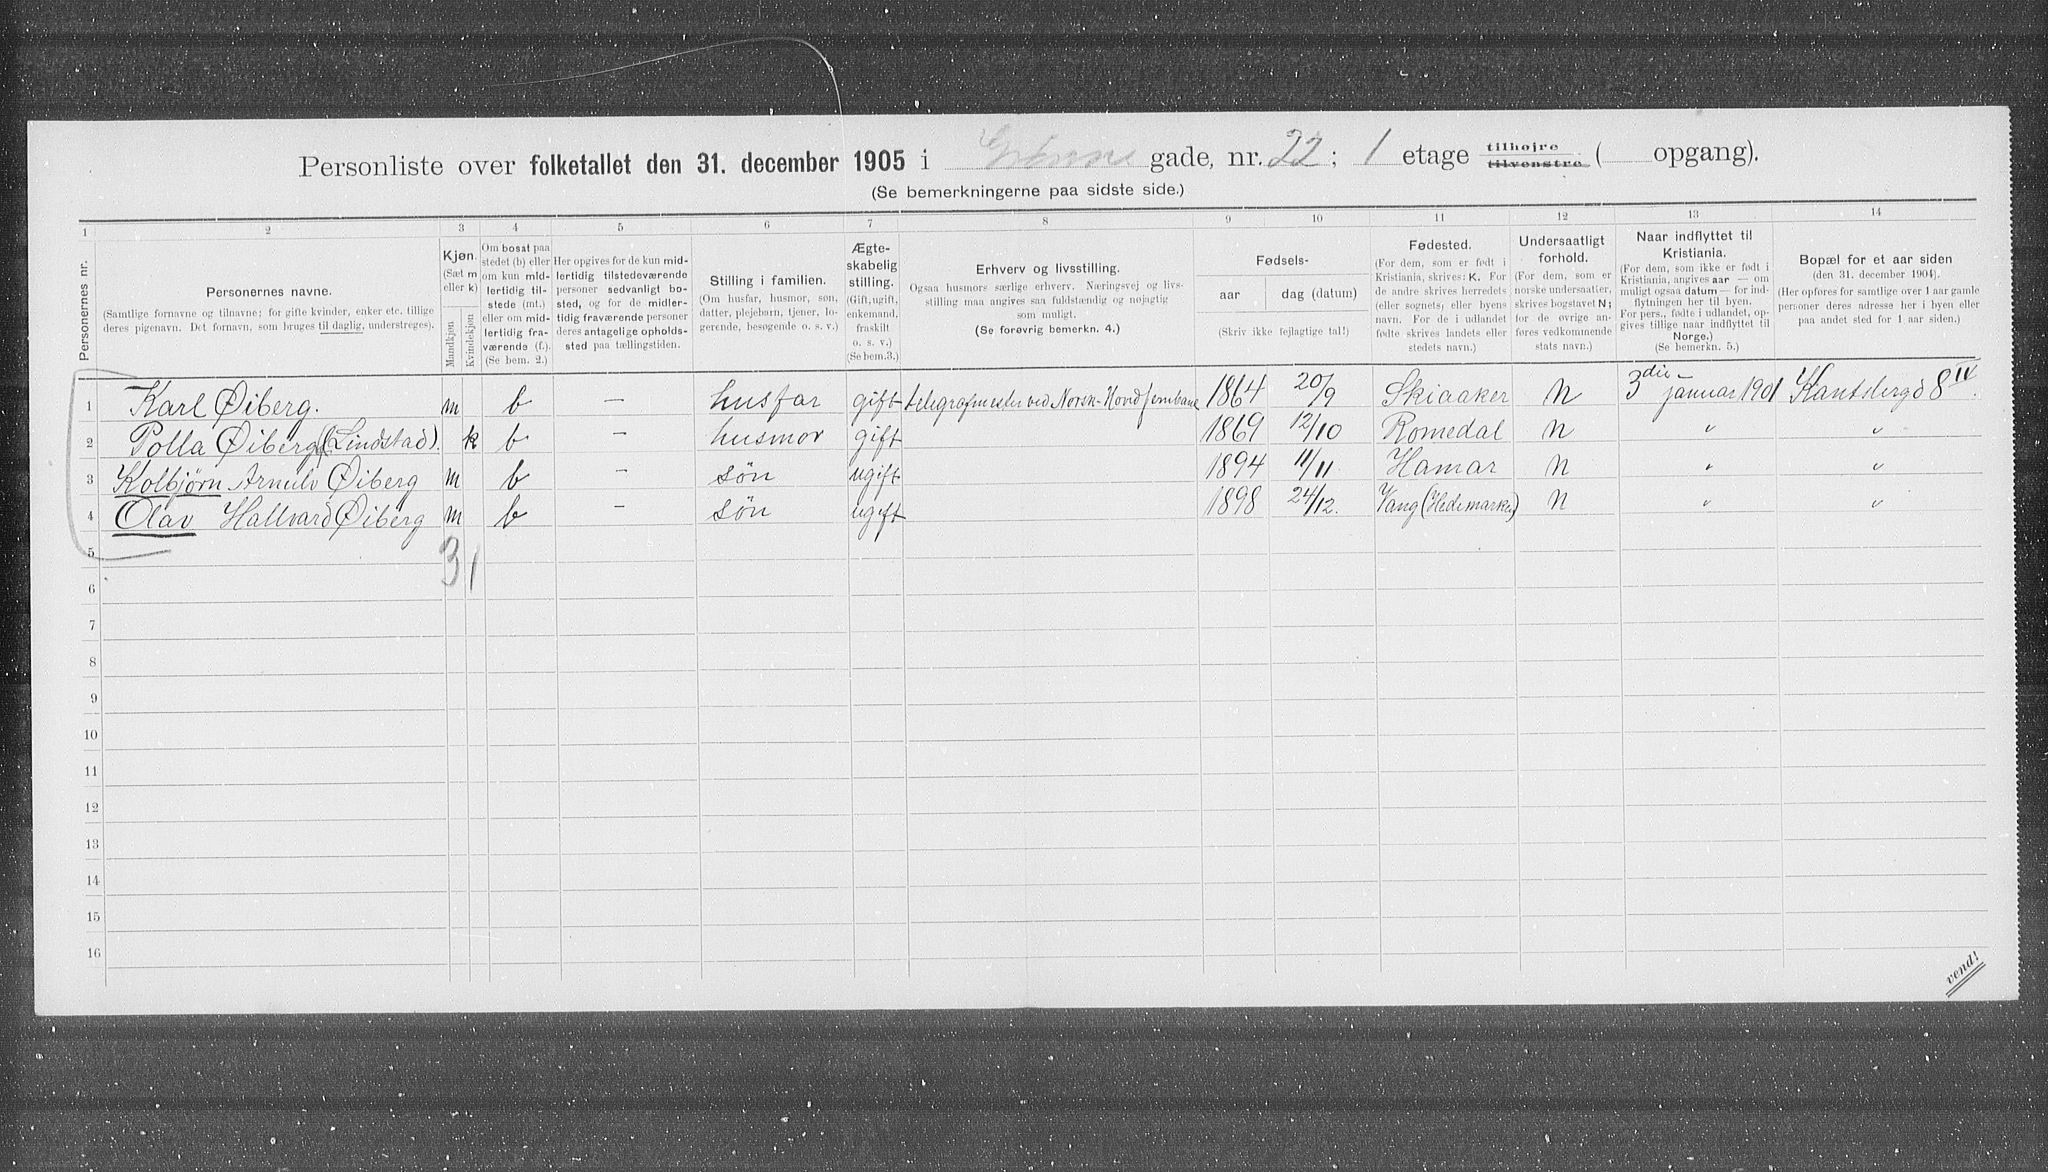 Personliste over folketallet den 31. december 1905 i Grønne gade, nr. 22; 1 etage tilhøjre tilvenstre ( opgang).
(Se bemerkningerne paa sidste side.)
1 2 3 4 5 6 7 8 9 10 11 12 13 14
Personernes nr.
Personernes navne.
(Samtlige fornavne og tilnavne; for gifte kvinder, enker etc. tillige
deres pigenavn. Det fornavn, som bruges til daglig, understreges).
Kjøn.
(Sæt m
eller k)
Mandkjøn
Kvindekjøn
Om bosat paa
stedet (b) eller
om kun midlertidig tilstede (mt.)
eller om midlertidig fraværende (f.).
(Se bem. 2.)
Her opgives for de kun midlertidig tilstedeværende
personer sedvanligt bosted, og for de midlertidig fraværende personer
deres antagelige opholdssted paa tællingstiden.
Stilling i familien.
(Om husfar, husmor, søn,
datter, plejebørn, tjener, logerende, besøgende o. s. v.)
Ægteskabelig
stilling.
(Gift, ugift,
enkemand,
fraskilt
o. s. v.)
(Se bem.3.)
Erhverv og livsstilling.
Ogsaa husmors særlige erhverv. Næringsvej og livsstilling maa angives saa fuldstændig og nøjagtig
som muligt.
(Se forøvrig bemerkn. 4.)
Fødsels-
aar
dag (datum)
(Skriv ikke fejlagtige tal!)
Fødested.
(For dem, som er født i
Kristiania, skrives: K. For
de andre skrives herredets
(eller sognets) eller byens
navn. For de i udlandet
fødte skrives landets eller
stedets navn.)
Undersaatligt
forhold.
(For dem, som er
norske undersaatter,
skrives bogstavet N;
for de øvrige anføres vedkommende
stats navn.)
Naar indflyttet til
Kristiania.
(For dem, som ikke er født i
Kristiania, angives aar — om
muligt ogsaa datum — for indflytningen her til byen.
For pers., fødte i udlandet, opgives tillige naar indflyttet til
Norge.)
(Se bemerkn. 5.)
Bopæl for et aar siden
(den 31. december 1904).
(Her opføres for samtlige over 1 aar gamle
personer deres adresse her i byen eller
paa andet sted for 1 aar siden.)
1 Karl Øiberg. m b — husfar gift telegrafmester ved Norsk-Hovedjernbane 1864 20/9 Skiaaker N 3die januar 1901 Kantsbergd 8 IV.
2 Polla Øiberg (Lindstad). k b — husmor gift 1869 12/10 Romedal N " "
3 Kolbjørn Arnulv Øiberg m b — søn ugift 1894 11/11. Hamar N " "
4 Olav Hallvard Øiberg m b — søn ugift 1898 24/12. Vang (Hedemarken) N " "
5
3 1
6
7
8
9
10
11
12
13
14
15
16
vend!